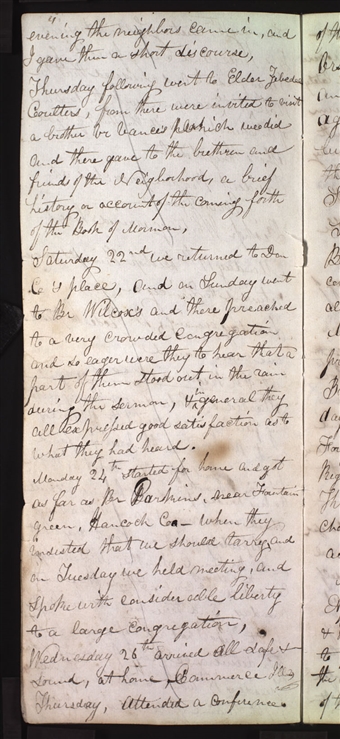 evening the neighbors came in, and
I gave them a short discourse,
Thursday following went to Elder Zebedee
Coulters, from there were invited to visit
a brother of Vance's which we did
and there gave to the brethren and
friends of the Neighborhood, a brief
history or account of the coming forth
of the Book of Mormon,
Saturday 22nd we returned to Don
Co's place, and on Sunday went
to Br Wilcox's and there preached
to a very crowded congregation
and so eager were they to hear that a
part of them stood out in the rain
during the sermon, & in general they
all expressed good satisfaction as to
what they had heard.
Monday 24th started for home and got
as far as Br Parkins, near Fountain
green, Hancock Co— when they
insisted that we should tarry, and
on Tuesday we held meeting, and
spoke with considerable liberty
to a large congregation,
Wednesday 26th arived all safe &
sound, at home, Commerce Ills
Thursday, attended a conference